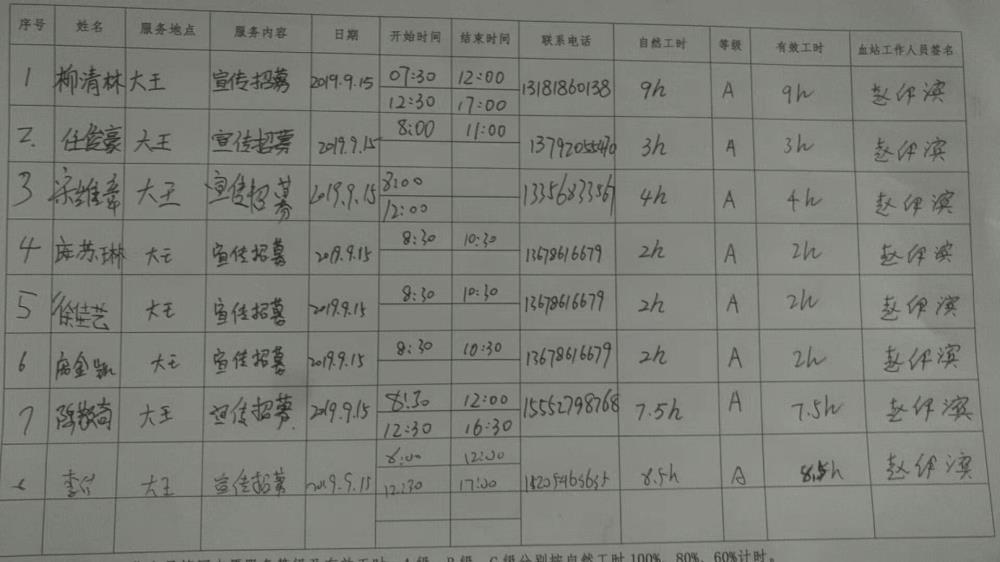 序号 姓名 服务地点 服务内容 日期 开始时间 结束时间 联系电话 自然工时 等级 有效工时 血站工作人员签名
1 柳清林 大王 宣传招募 2019.9.15 07:30 12:00 13181860138 9h A 9h 赵伊滨
12:30 17:00
2. 任俊豪 大王 宣传招募 2019.9.15 8:00 11:00 13792055470 3h A 3h 赵伊滨
3 宋维章 大王 宣传招募 2019.9.15 8:00 13356833567 4h A 4h 赵伊滨
12:00
4 苏琳 大王 宣传招募 2019.9.15 8:30 10:30 13678616679 2h A 2h 赵伊滨
5 徐佳芸 大王 宣传招募 2019.9.15 8:30 10:30 13678616679 2h A 2h 赵伊滨
6 大王 宣传招募 2019.9.15 8:30 10:30 13678616679 2h A 2h 赵伊滨
7 大王 宣传招募 2019.9.15 8:30 12:00 15552798768 7.5h A 7.5h 赵伊滨
12:30 16:30
大王 宣传招募 2019.9.15 8:00 12:00 8.5h A 8.5h 赵伊滨
12:30 17:00
A级、B级、C级分别按自然工时100%、80%、60%计时。